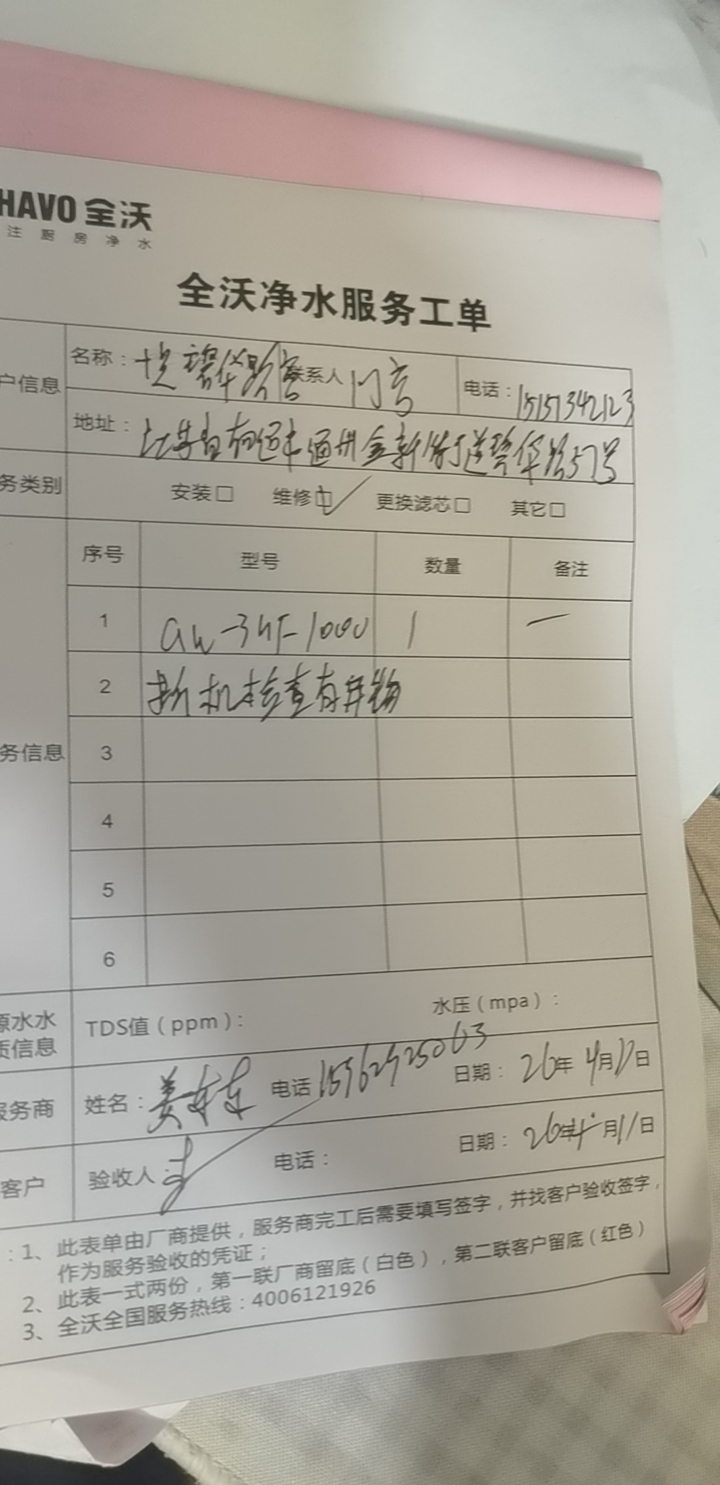 HAVO 全沃
注厨房净水
全沃净水服务工单
户信息
名称：碧华路 联系人 电话：15151342123
地址：江苏省南通市通州金新街道碧华路57号
务类别 安装□ 维修□ 更换滤芯□ 其它□
序号 型号 数量 备注
务信息
1 1000 1 一
2 拆机检查有异物
3
4
5
6
原水水质信息 TDS值（ppm）： 水压（mpa）：
服务商 姓名：姜 电话 15962925063 日期：26年4月17日
客户 验收人： 电话： 日期：26年4月17日
：1、此表单由厂商提供，服务商完工后需要填写签字，并找客户验收签字，
作为服务验收的凭证；
2、此表一式两份，第一联厂商留底（白色），第二联客户留底（红色）
3、全沃全国服务热线：4006121926